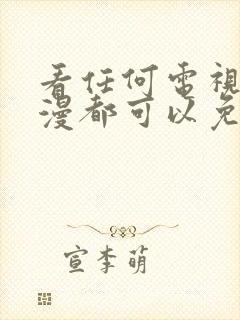 看任何電視
漫都可以免
宣李萌